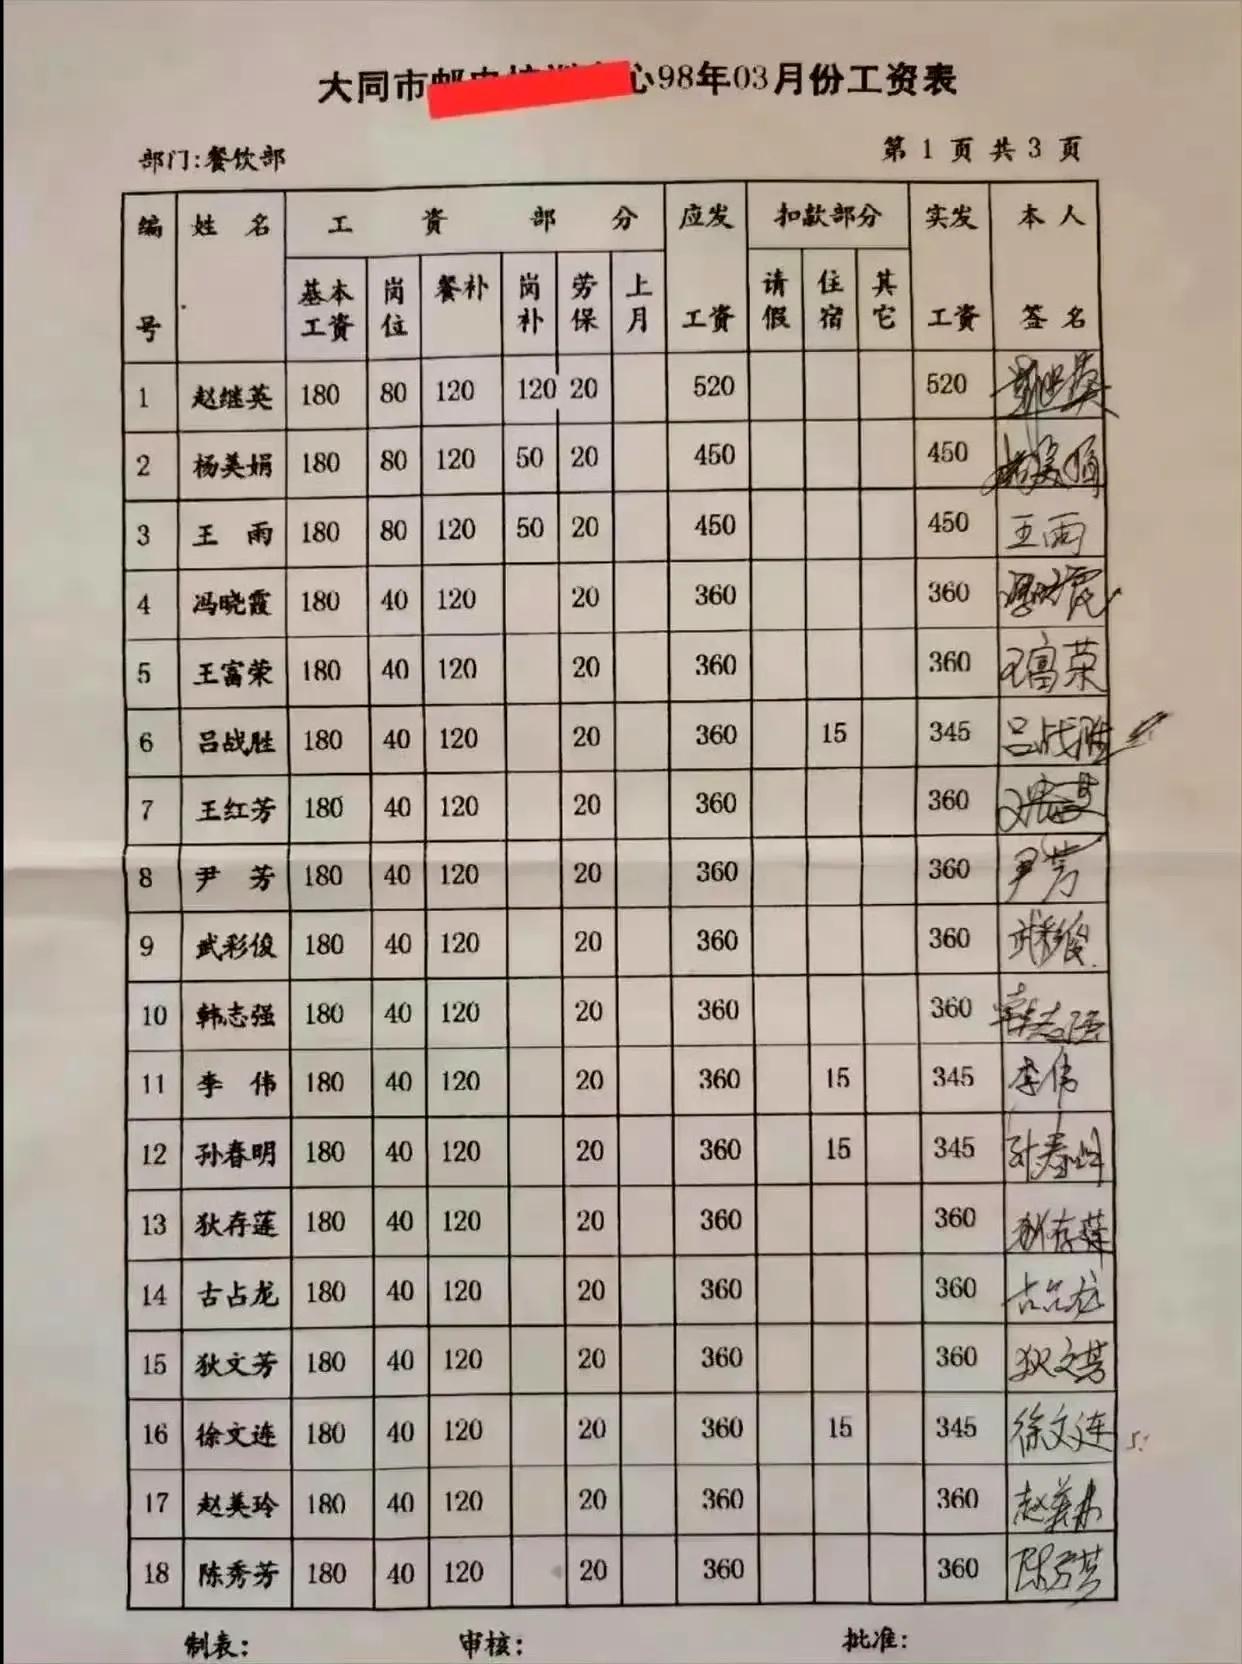 大同市 心98年03月份工资表
部门:餐饮部 第 1 页 共 3 页
编号 姓 名 工 资 部 分 应发工资 扣款部分 实发工资 本人签名
基本工资 岗位 餐补 岗补 劳保 上月 请假 住宿 其它
1 赵继英 180 80 120 120 20 520 520
2 杨美娟 180 80 120 50 20 450 450
3 王 雨 180 80 120 50 20 450 450 王雨
4 冯晓霞 180 40 120 20 360 360
5 王富荣 180 40 120 20 360 360 王富荣
6 吕战胜 180 40 120 20 360 15 345 吕战胜
7 王红芳 180 40 120 20 360 360
8 尹 芳 180 40 120 20 360 360 尹芳
9 武彩俊 180 40 120 20 360 360 武彩俊
10 韩志强 180 40 120 20 360 360 韩志强
11 李 伟 180 40 120 20 360 15 345 李伟
12 孙春明 180 40 120 20 360 15 345 孙春明
13 狄存莲 180 40 120 20 360 360 狄存莲
14 古占龙 180 40 120 20 360 360 古占龙
15 狄文芳 180 40 120 20 360 360 狄文芳
16 徐文连 180 40 120 20 360 15 345 徐文连
17 赵美玲 180 40 120 20 360 360
18 陈秀芳 180 40 120 20 360 360 陈秀芳
制表: 审核: 批准: